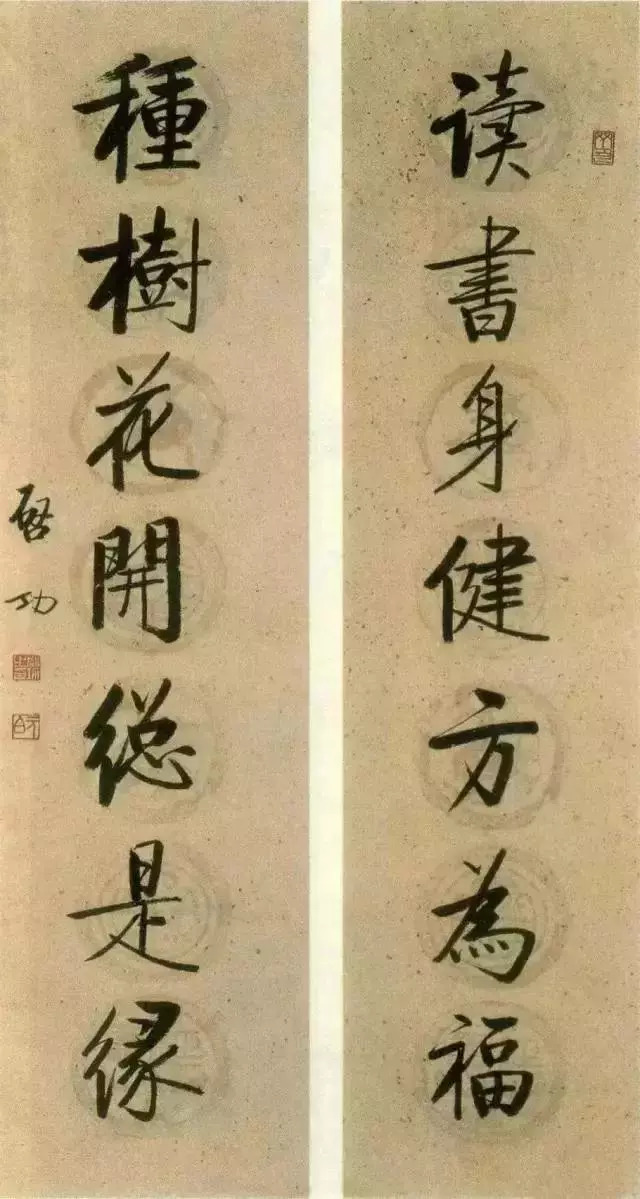 读书身健方為福
種樹花開総是缘
启功